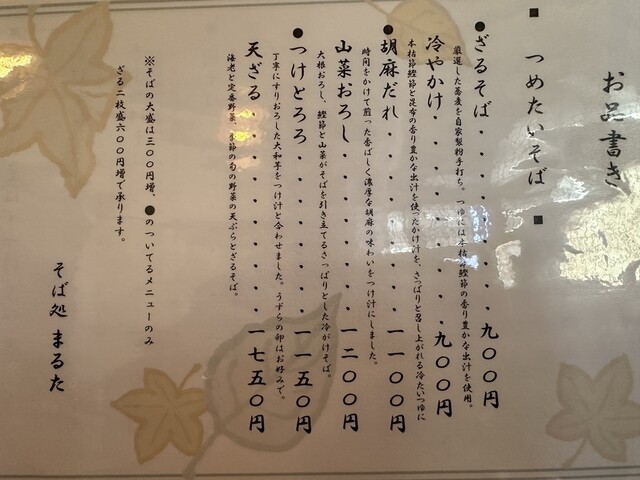 お品書き
■ つめたいそば ■
●ざるそば・・・・・・・・・九〇〇円
厳選した蕎麦を自家製粉手打ち。つゆには本枯節鰹節の香り豊かな出汁を使用。
冷やかけ・・・・・・・・・九〇〇円
本枯節鰹節と昆布の香り豊かな出汁を使ったかけ汁を、さっぱりと召し上がれる冷たいつゆに
●胡麻だれ・・・・・・・・一一〇〇円
時間をかけて煎った香ばしく濃厚な胡麻の味わいをつけ汁にしました。
山菜おろし・・・・・・・・一二〇〇円
大根おろし、鰹節と山菜がそばを引き立てるさっぱりとした冷がけそば。
●つけとろろ・・・・・・・一一五〇円
丁寧にすりおろした大和芋をつけ汁と合わせました。うずらの卵はお好みで。
天ざる・・・・・・・・・・一七五〇円
海老と定番野菜、季節の旬の野菜の天ぷらとざるそば。
※そばの大盛は三〇〇円増、●のついてるメニューのみ
ざる二枚盛六〇〇円増で承ります。
そば処 まるた